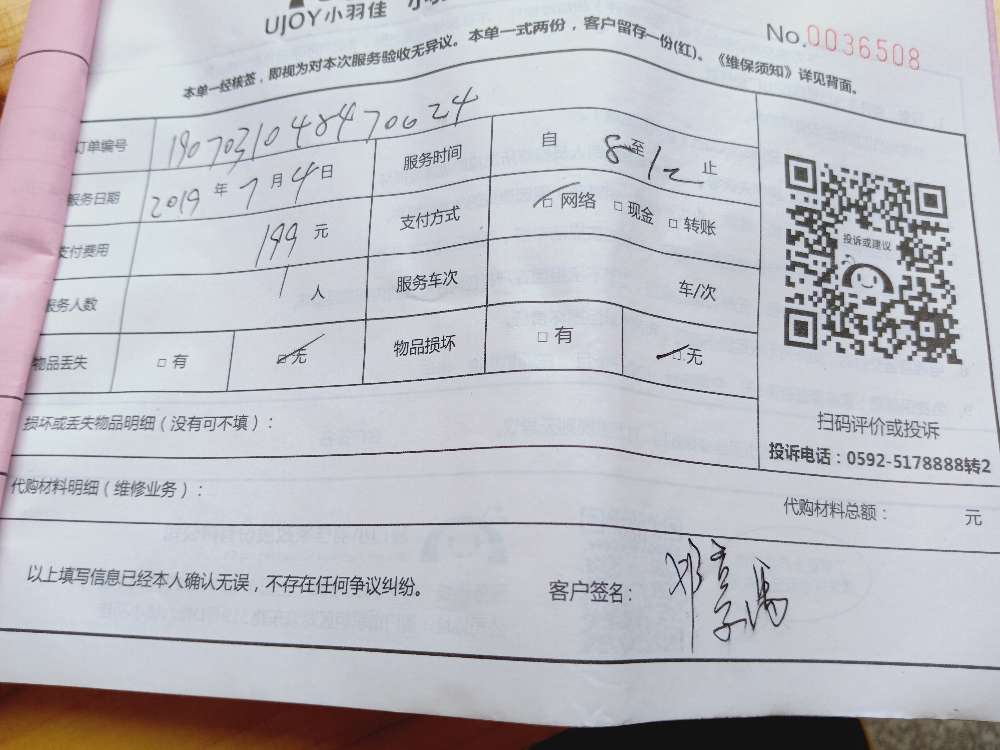 UJOY小羽佳
No.0036508
本单一经核签，即视为对本次服务验收无异议。本单一式两份，客户留存一份(红)。《维保须知》详见背面。
订单编号 19070310484470024 服务时间 自 8 至 12 止
服务日期 2019 年 7 月 4 日 支付方式 □ 网络 □ 现金 □ 转账
支付费用 199 元 服务车次 车/次
服务人数 1 人
物品丢失 □ 有 □ 无 物品损坏 □ 有 □ 无
投诉或建议
扫码评价或投诉
投诉电话：0592-5178888转2
损坏或丢失物品明细（没有可不填）：
代购材料明细（维修业务）：
代购材料总额： 元
以上填写信息已经本人确认无误，不存在任何争议纠纷。 客户签名：